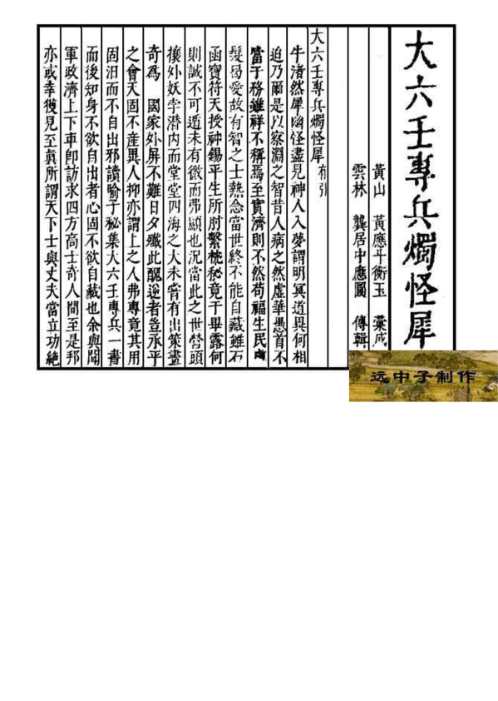 大六壬專兵燭怪犀
黃山　黃應斗衡玉　彙成
雲林　龔居中應圓　傳輯
大六壬專兵燭怪犀　有引
牛渚然犀幽怪盡見神人入夢謂明冥道異何相
迫乃爾是以察淵之智昔人病之然虛華愚首不
當于務雖祥不稱焉至實濟則不然苟福生民
髮曷愛故有智之士熱念當世終不能自藏雖石
函寶符天授神錫平生所肘繫枕秘竟于畢露何
則誠不可遏未有微而弗顯也況當此之世營頭
攘外妖孛潛内而堂堂四海之大未嘗有出策盡
奇爲　國家外屏不難日夕殲此醜逆者豈承平
之會天固不産異人抑亦謂上之人弗專竟其用
固汨而不自出邪讀喻于秘集大六壬專兵一書
而後知身不欲自出者心固不欲自藏也余與聞
軍政濟上下車卽訪求四方高士奇人間至是邦
亦或幸獲見至眞所謂天下士與丈夫當立功絶
远中子制作